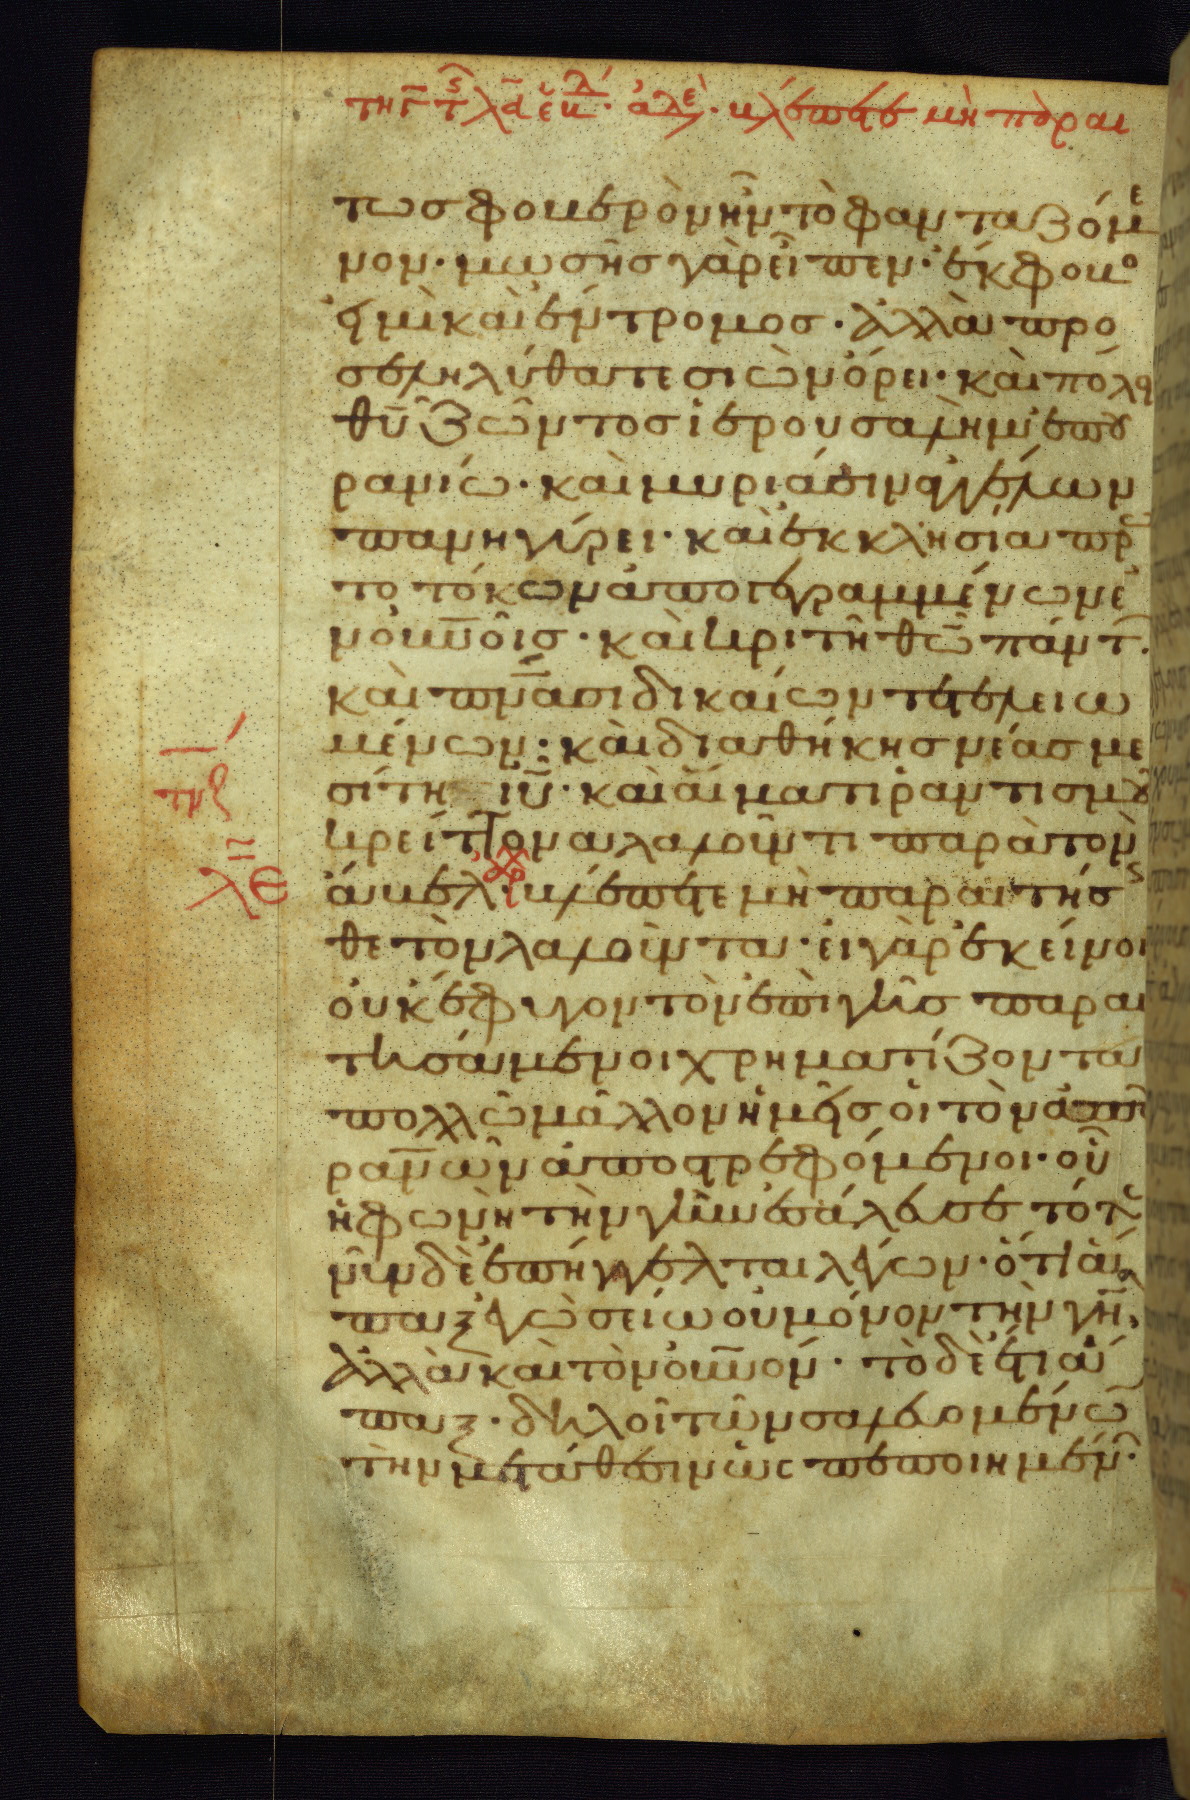 τη γ τ λα εβ αδελ βλεπετε μη παραι
τως φοβερὸν ἦν τὸ φανταζόμε
νον· μωσῆς γὰρ εἶπεν· ἔκφοβο
εἰμὶ καὶ ἔντρομος· ἀλλὰ προ
σεληλύθατε σιὼν ὄρει· καὶ πόλει
θῦ ζῶντος ἱερουσαλὴμ ἐπου
ρανίω· καὶ μυριάσιν ἀγγέλων
πανηγύρει· καὶ ἐκκλησία πρω
τοτόκων ἀπογεγραμμένων ἐ
ν οὐνοῖς· καὶ κριτῆ θῶ πάντ
καὶ πνάσι δικαίων τετελειω
μένων· καὶ διαθήκης νέας με
σίτη ἰῦ· καὶ αἵματι ῥαντισμοῦ
κρείττονα λαλοῦντι παρὰ τὸν
τιζ
ἄβελ· βλέπετε μὴ παραιτήσ
λε
θε τὸν λαλοῦντα· εἰ γὰρ ἐκεῖνοι
οὐκ ἔφυγον τὸν ἐπὶ γῆς παραι
τησάμενοι χρηματίζοντα
πολλῶ μᾶλλον ἡμεῖς οἱ τὸν ἀπ
ρανῶν ἀποστρεφόμενοι· οὗ
ἡ φωνὴ τὴν γῆν ἐσάλευσε τότε
νῦν δὲ ἐπήγγελται λέγων· ὅτι ἅ
παξ ἐγὼ σείω οὐ μόνον τὴν γῆν
ἀλλὰ καὶ τὸν οὐνόν· τὸ δὲ ἔτι ἅ
παξ· δηλοῖ τῶν σαλευομένω
τὴν μετάθεσιν ὡς πεποιημέν